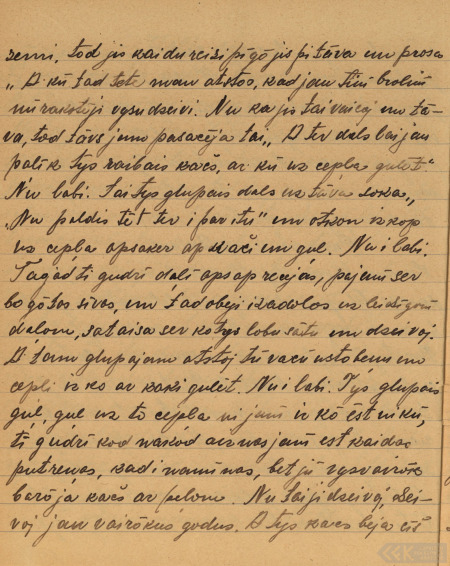 zemi, tod jis kaidu reizi pīgō jis pi tāva un prosa
„A kū tad tete man atstos, kad jau tīni broliui
nūrakstiji vysu dzeivi. Nu ka jis tai vaicoj nu tā-
va, tod tāvs jam pasacēja tai „A tev dāls lai jau
palīk tys raibais kačs, ar kū uz cepļa gulēt“
Nu labi. Tai tys glupais dāls uz tāva soka „
Nu paldis tēt tev i par itū“ un otkon izkop
uz cepļa apsaker ap kači un guļ. Nu i labi.
Tagad ti gudri dāli apsaprecejas, pajem sev
bogōtas sīvas, un tad obeji izadolos uz leidzīgom
dalom, sataisa sev kotys lobu sātu un dzeivoj.
A tam glupajam atstoj tū vacū ustobeņu un
cepli iz ko ar kaki gulēt. Nu i labi. Tys glupais
guļ, guļ uz to cepļa ni jam ir kō ēst ni kū,
ti gudri kod nakod aiznas jam ēst kaidas
putremas, kad i nanūnas, bet jū vysvairōk
barōja kačs ar pelom. Nu tai ji dzeivoj, dzei-
voj jau vairōkus godus. A tys kačs beja cīš